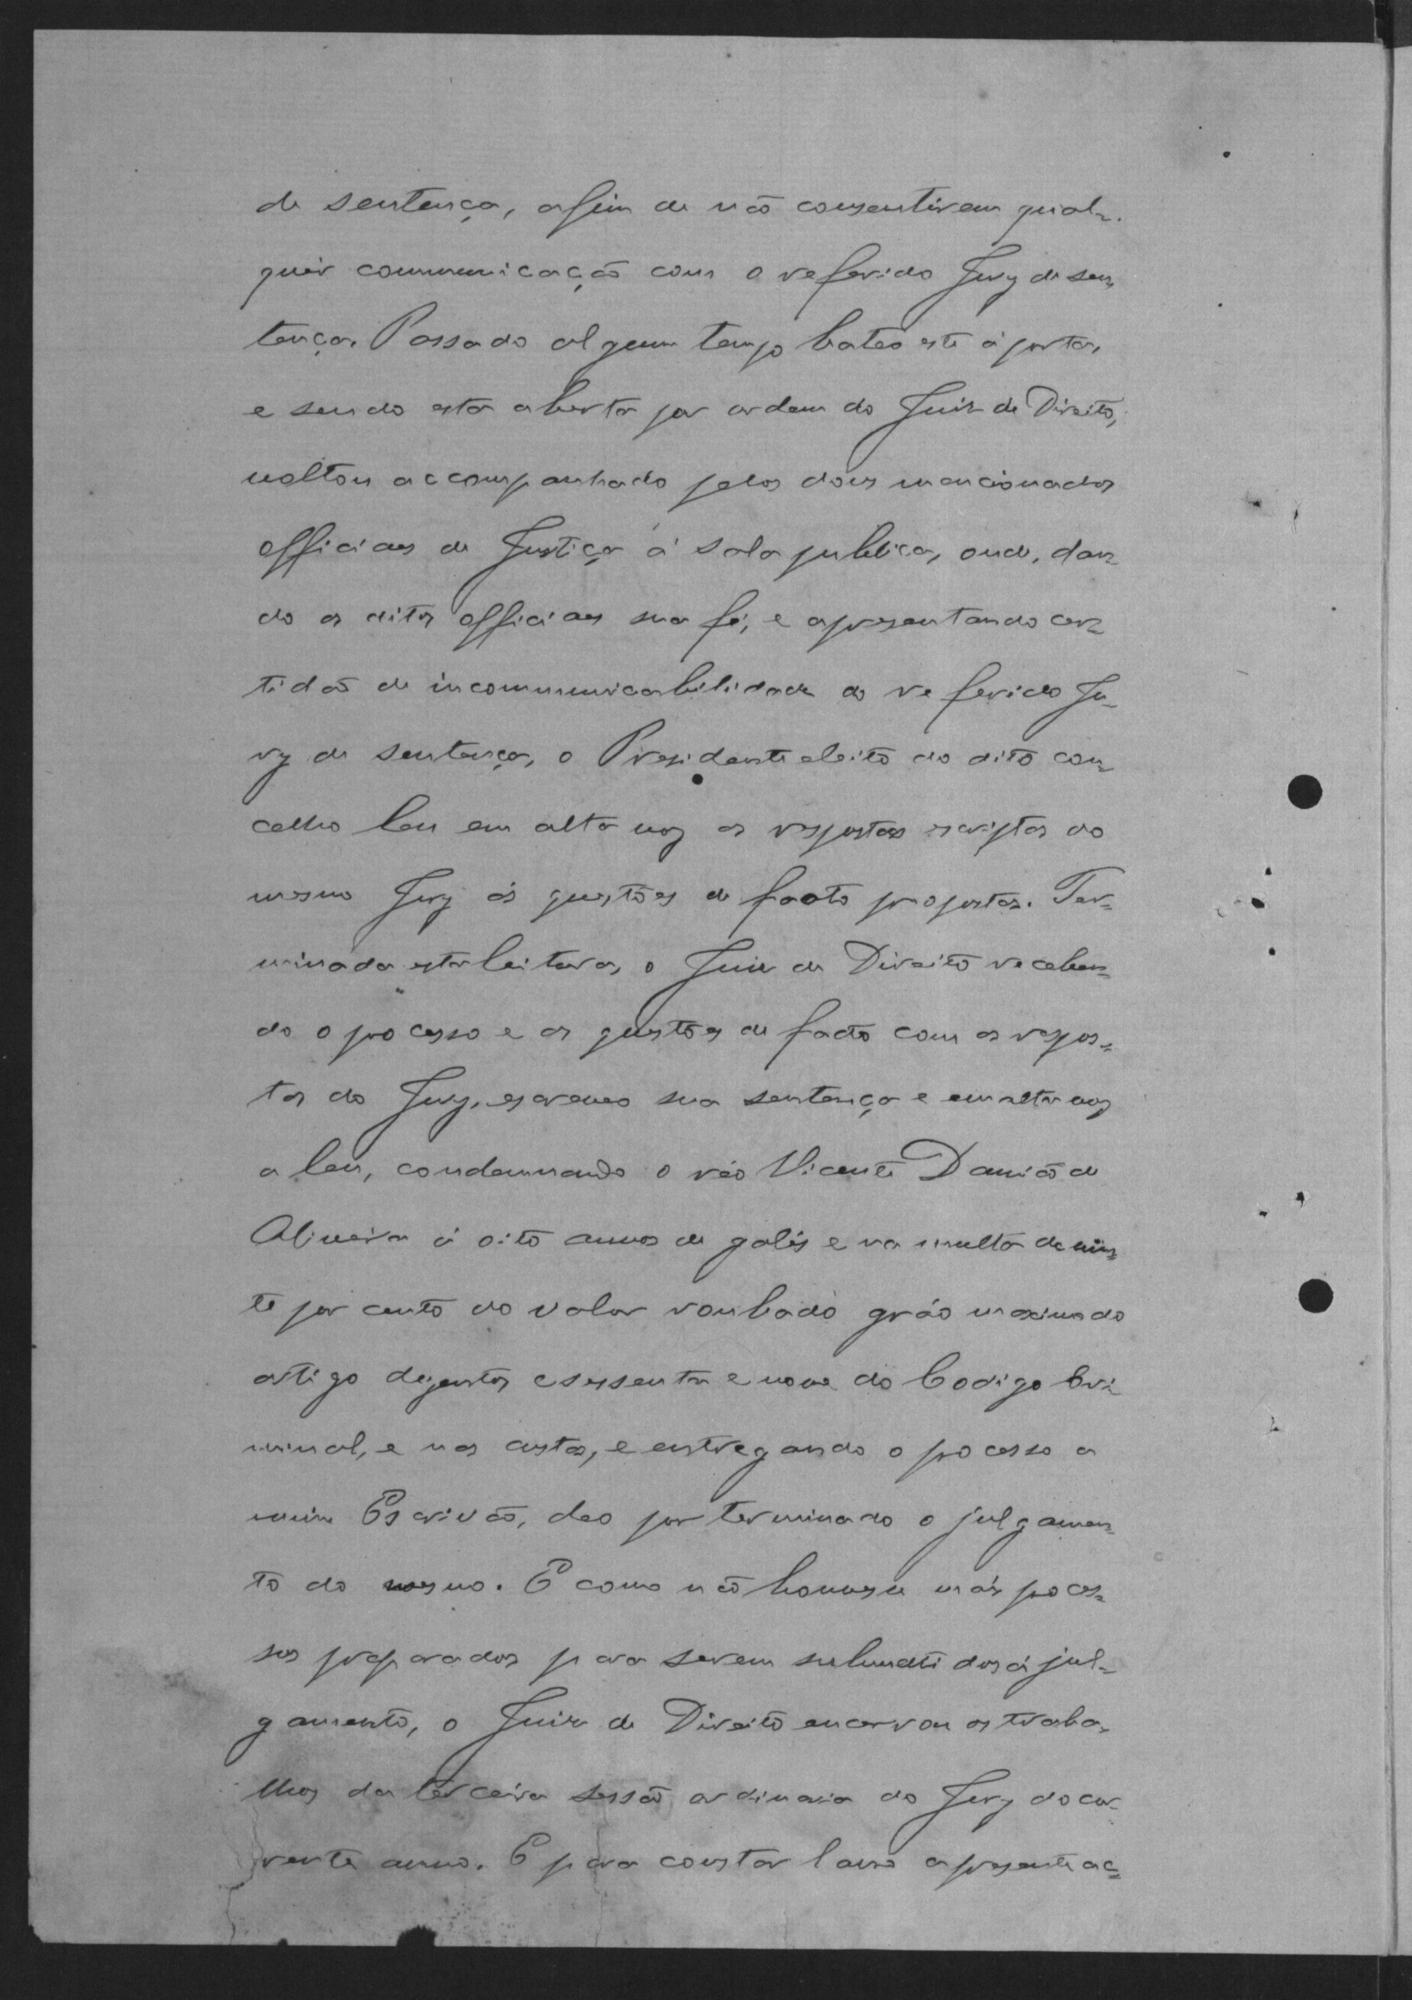 de sentença, afim de não consentirem qual-
quer communicação com o referido Jury de sen-
tença. Passado algum tempo bateo este á porta,
e sendo esta aberta por ordem do Juiz de Direito,
voltou accompanhado pelos dous mencionados
officiaes de Justiça á sala publica, onde, dan-
do os ditos officiaes sua fé, e apresentando cer-
tidão de incommunicabilidade do referido Ju-
ry de sentença, o Presidente eleito do dito con-
celho leu em alta voz as respostas escriptas do
mesmo Jury ás questões de facto propostas. Ter-
minada esta leitura, o Juiz de Direito receben-
do o processo e as questões de facto com as respos-
tas do Jury, escreveo sua sentença e em alta voz
a leu, condemnando o réo Vicente Damião de
Oliveira á oito annos de galés e na multa de vin-
te por cento do valor roubado gráo maximo do
artigo dusentos e sessenta e nove do Codigo Cri-
minal, e nas custas, e entregando o processo a
mim Escrivão, deo por terminado o julgamen-
to do mesmo. E como não houvesse mais proces-
sos preparados para serem submettidos á jul-
gamento, o Juiz de Direito encerrou os traba-
lhos da terceira sessão ordinaria do Jury do cor-
rente anno. E para constar lavro a presente ac-